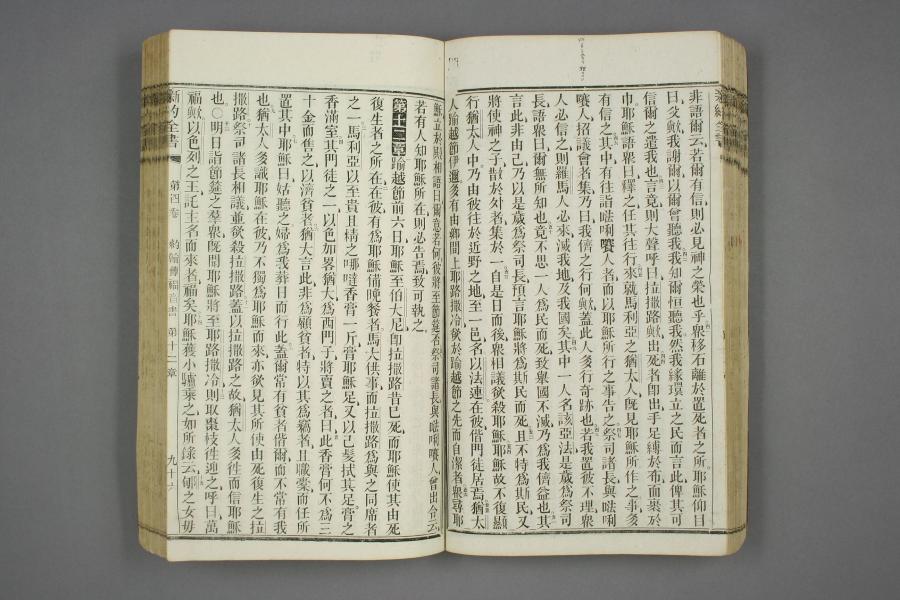 非語爾云若爾有信則必見神之榮也乎眾移石離於置死者之所耶穌仰目
曰父歟我謝爾以爾曾聽我我知爾恒聽我然我緣環立之民而言此俾其可
信爾之遣我也言竟則大聲呼曰拉撒路歟出死者即出手足縛於布面裹於
巾耶穌語眾曰釋之任其往行來就馬利亞之猶太人既見耶穌所作之事多
有信之其中有往詣𠵽唎㘔人者而以耶穌所行之事告之祭司諸長與𠵽唎
㘔人招議會者集乃曰我儕之行何歟蓋此人多行奇跡也若我置彼不理眾
人必信之則羅馬人必來滅我地及我國矣其中一人名該亞法是歲為祭司
長語眾曰爾無所知也竟不思一人為民而死致舉國不滅乃為我儕益也其
言此非由己乃以是歲為祭司長預言耶穌將為斯民而死且不特為斯民又
將使神之子散於外者集於一自是日而後眾相議欲殺耶穌耶穌故不復顯
行猶太人中乃由彼往於近野之地至一邑名以法連在彼偕門徒居焉猶太
人踰越節伊邇多有由鄉間上耶路撒冷欲於踰越節之先而自潔者眾尋耶
穌立於殿相語曰爾意若何彼將至節筵否祭司諸長與𠵽唎㘔人曾出令云
若有人知耶穌所在則必告焉致可執之
第十二章踰越節前六日耶穌至伯大尼即拉撒路昔已死而耶穌使其由死
復生者之所在在彼有為耶穌備晚餐者馬大供事而拉撒路為與之同席者
之一馬利亞以至貴且精之哪噠香膏一斤膏耶穌足又以己髮拭其足膏之
香滿室其門徒之一以色加畧猶大為西門子將賣之者曰此香膏何不為三
十金而售之以濟貧者猶大言此非為顧貧者特以其為竊者且職橐而任所
置其中耶穌曰姑聽之婦為我葬日而行此蓋爾常有貧者偕爾而不常有我
也猶太人多識耶穌在彼乃不獨為耶穌而來亦欲見其所使由死復生之拉
撒路祭司諸長相議並欲殺拉撒路蓋以拉撒路之故猶太人多往而信耶穌
也〇明日詣節筵之羣眾既聞耶穌將至耶路撒冷則取棗枝往迎之呼曰萬
福歟以色列之王託主名而來者福矣耶穌獲小驢乘之如所錄云郇之女毋
新約全書
第四卷
約翰傳福音書
第十二章
新約全書